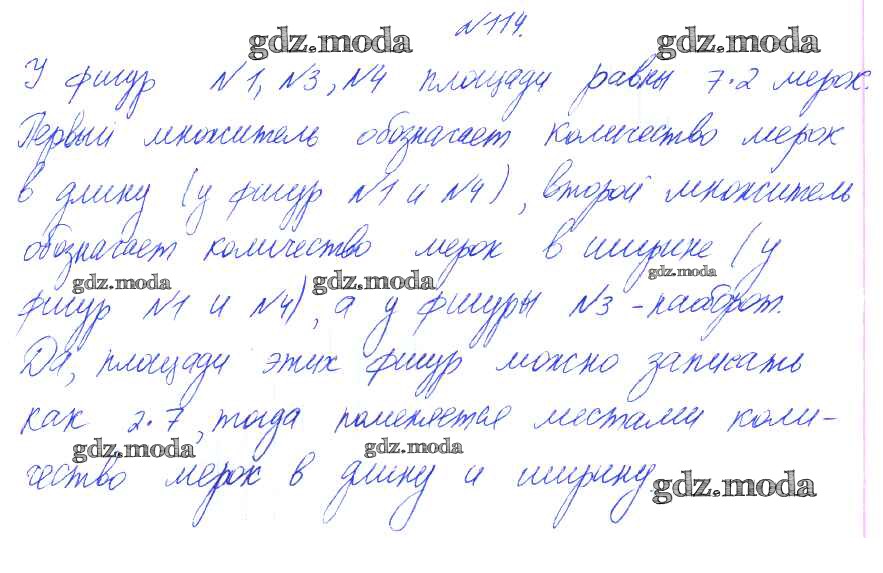 №114.
gdz.moda gdz.moda
У фигур №1, №3, №4 площади равны 7·2 мерок.
Первый множитель обозначает количество мерок
в длину (у фигур №1 и №4), второй множитель
обозначает количество мерок в ширине (у
gdz.moda gdz.moda gdz.moda
фигур №1 и №4), а у фигуры №3 - наоборот.
Да, площади этих фигур можно записать
как 2·7, тогда поменяется местами коли-
gdz.moda gdz.moda
чество мерок в длину и ширину.
gdz.moda